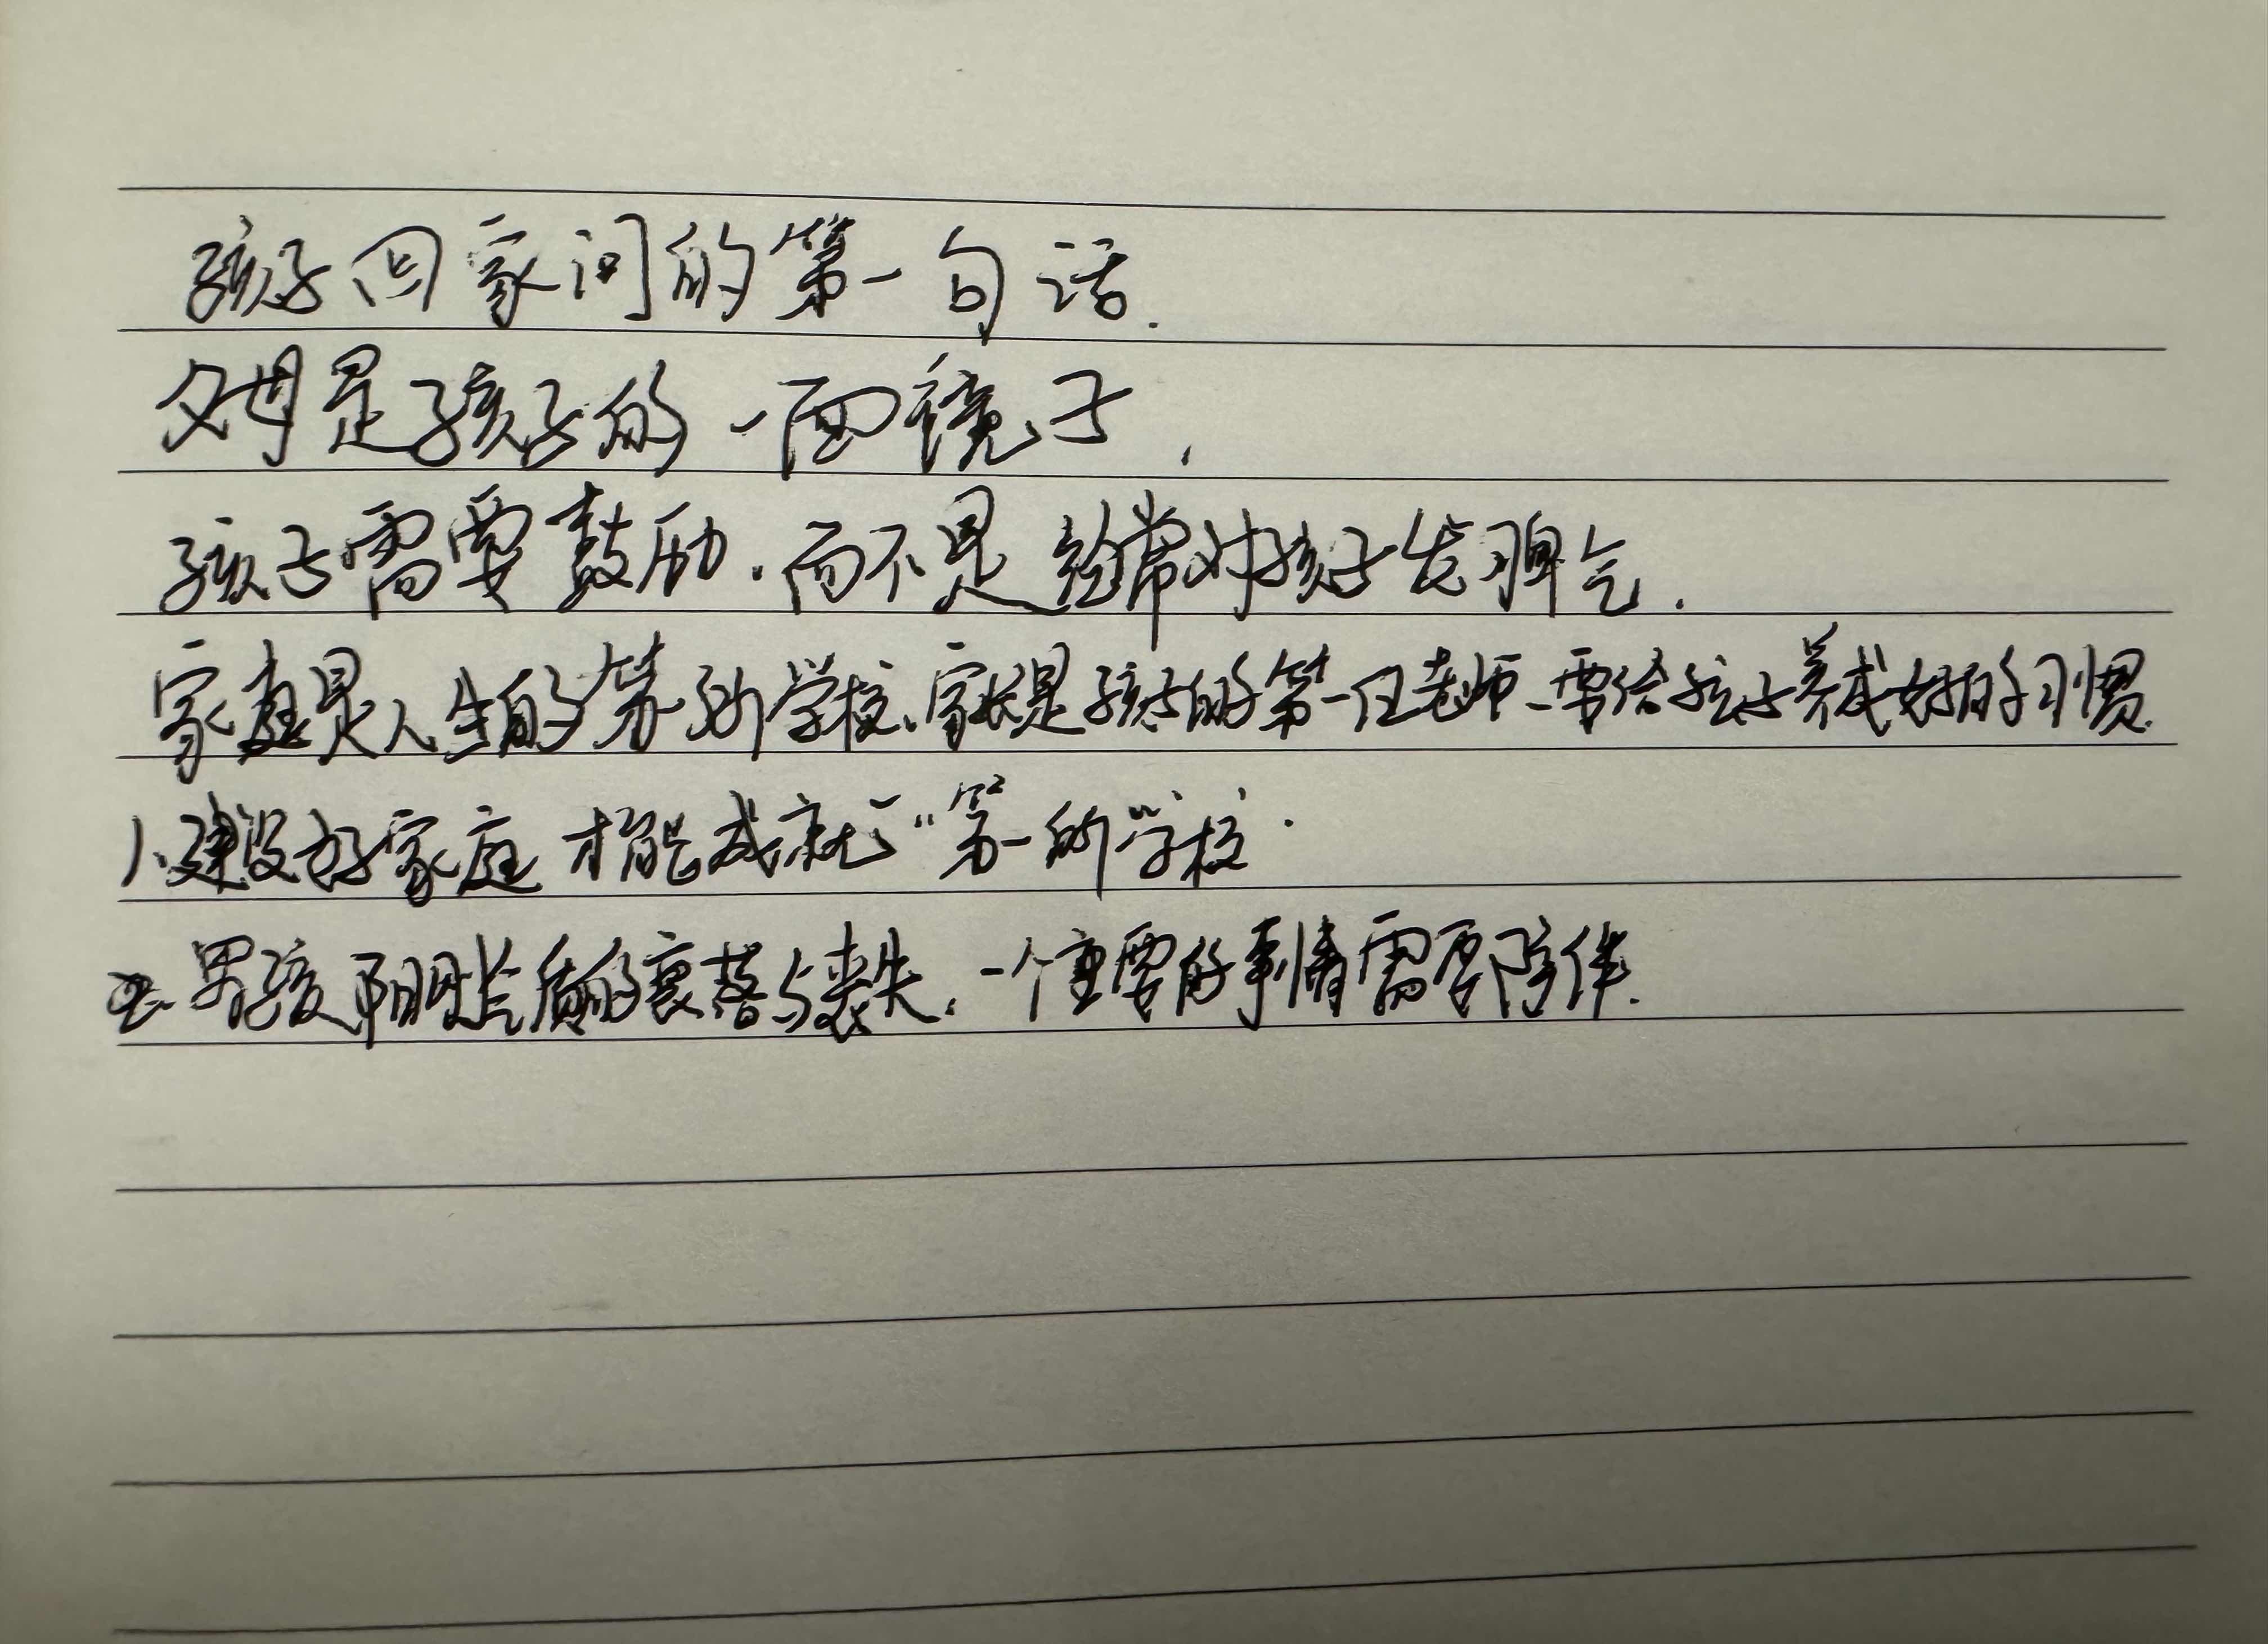 孩子回家问的第一句话.
父母是孩子的一面镜子,
孩子需要鼓励.而不是经常对孩子发脾气.
家庭是人生的第一所学校、家长是孩子的第一任老师、要给孩子养成好的习惯.
1、建设好家庭 才能成就“第一所学校.
2、男孩阳刚气质的衰落与丧失,一个重要的事情需要陪伴.